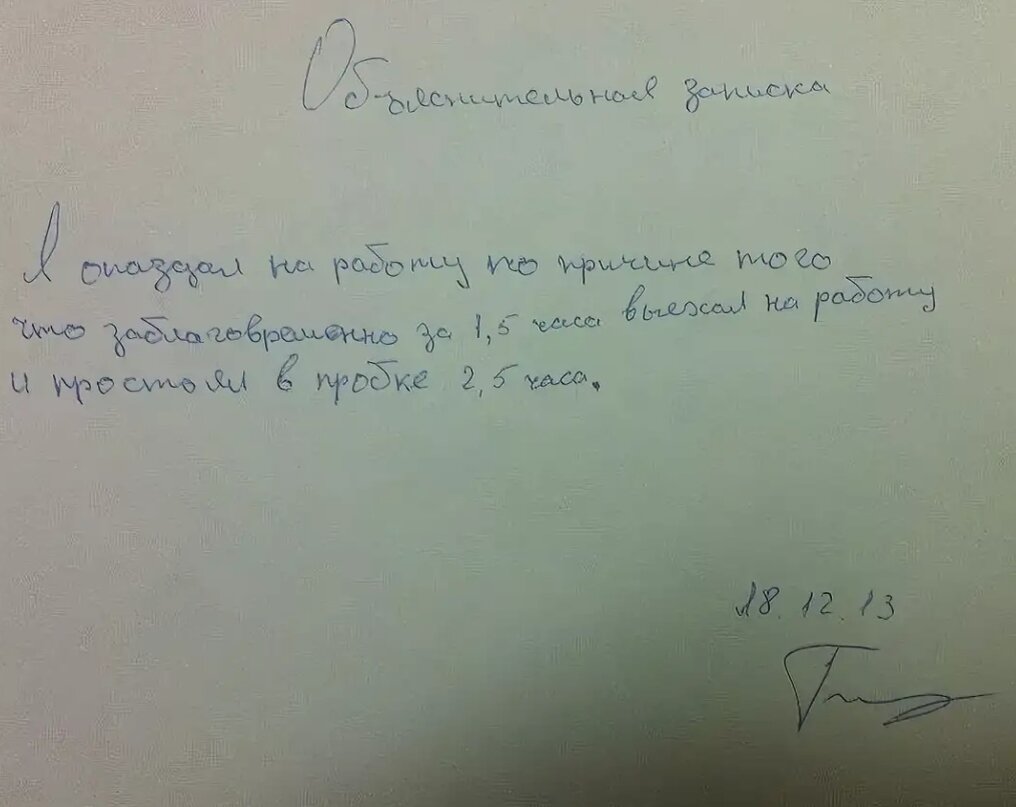 Объяснительная записка
Я опаздал на работу по причине того
что заблаговременно за 1,5 часа выехал на работу
и простоял в пробке 2,5 часа.
18.12.13